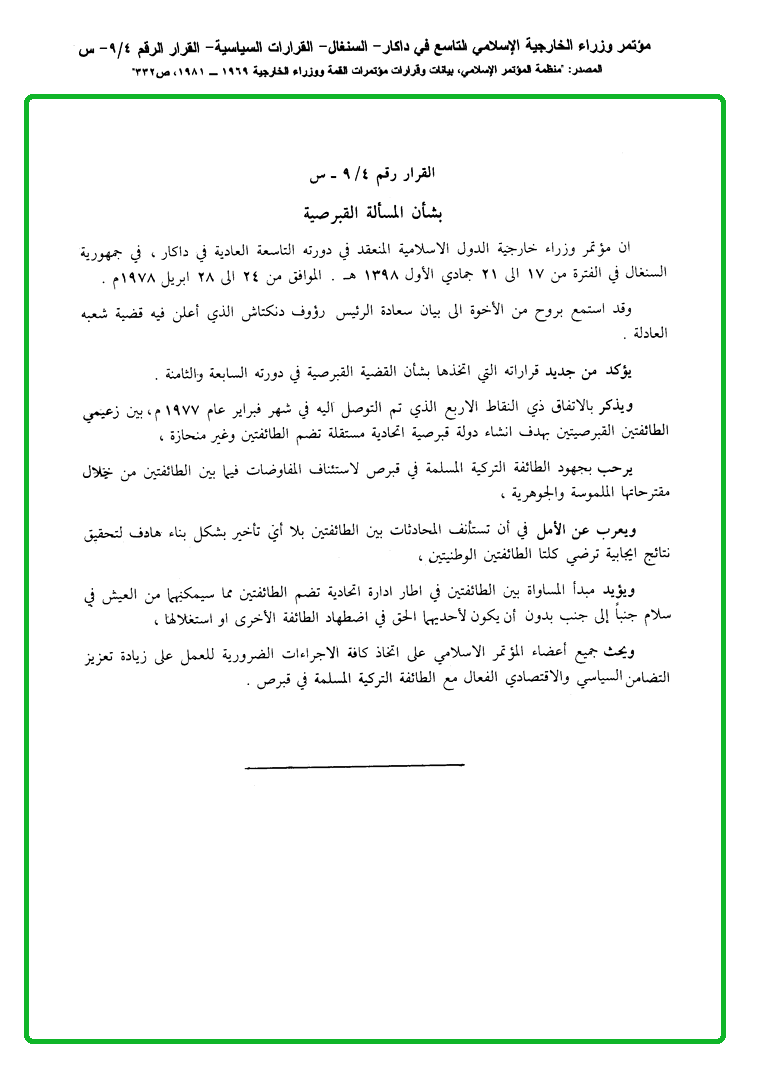 مؤتمر وزراء الخارجية الإسلامي التاسع في داكار- السنغال- القرارات السياسية- القرار الرقم ٩/٤- س
المصدر: "منظمة المؤتمر الإسلامي، بيانات وقرارات مؤتمرات القمة ووزراء الخارجية ١٩٦٩ ــ ١٩٨١، ص٣٣٢"
القرار رقم ٩/٤ - س
بشأن المسألة القبرصية
ان مؤتمر وزراء خارجية الدول الاسلامية المنعقد في دورته التاسعة العادية في داكار ، في جمهورية
السنغال في الفترة من ١٧ الى ٢١ جمادي الأول ١٣٩٨ هـ . الموافق من ٢٤ الى ٢٨ ابريل ١٩٧٨م .
وقد استمع بروح من الأخوة الى بيان سعادة الرئيس رؤوف دنكتاش الذي أعلن فيه قضية شعبه
العادلة .
يؤكد من جديد قراراته التي اتخذها بشأن القضية القبرصية في دورته السابعة والثامنة .
ويذكر بالاتفاق ذي النقاط الاربع الذي تم التوصل اليه في شهر فبراير عام ١٩٧٧ م، بين زعيمي
الطائفتين القبرصيتين بهدف انشاء دولة قبرصية اتحادية مستقلة تضم الطائفتين وغير منحازة ،
يرحب بجهود الطائفة التركية المسلمة في قبرص لاستئناف المفاوضات فيما بين الطائفتين من خلال
مقترحاتها الملموسة والجوهرية ،
ويعرب عن الأمل في أن تستأنف المحادثات بين الطائفتين بلا أي تأخير بشكل بناء هادف لتحقيق
نتائج ايجابية ترضي كلتا الطائفتين الوطنيتين ،
ويؤيد مبدأ المساواة بين الطائفتين في اطار ادارة اتحادية تضم الطائفتين مما سيمكنهما من العيش في
سلام جنباً إلى جنب بدون أن يكون لأحديهما الحق في اضطهاد الطائفة الأخرى او استغلالها ،
ويحث جميع أعضاء المؤتمر الاسلامي على اتخاذ كافة الاجراءات الضرورية للعمل على زيادة تعزيز
التضامن السياسي والاقتصادي الفعال مع الطائفة التركية المسلمة في قبرص .